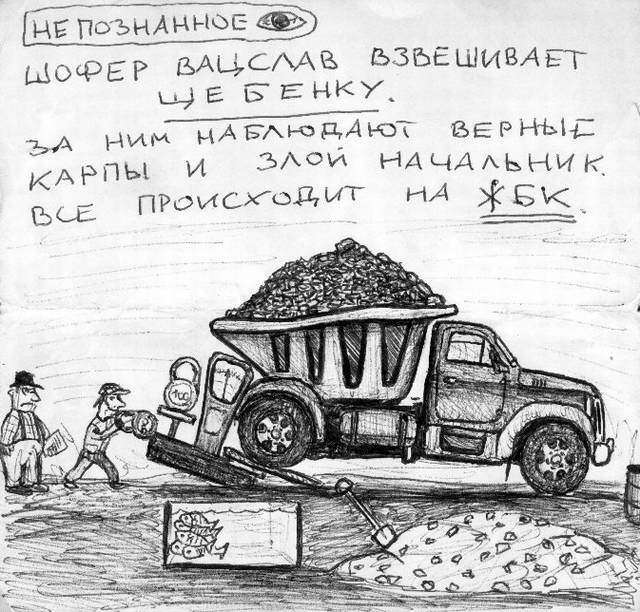 НЕПОЗНАННОЕ
ШОФЕР ВАЦСЛАВ ВЗВЕШИВАЕТ
ЩЕБЕНКУ.
ЗА НИМ НАБЛЮДАЮТ ВЕРНЫЕ
КАРПЫ И ЗЛОЙ НАЧАЛЬНИК.
ВСЕ ПРОИСХОДИТ НА ЖБК.
100